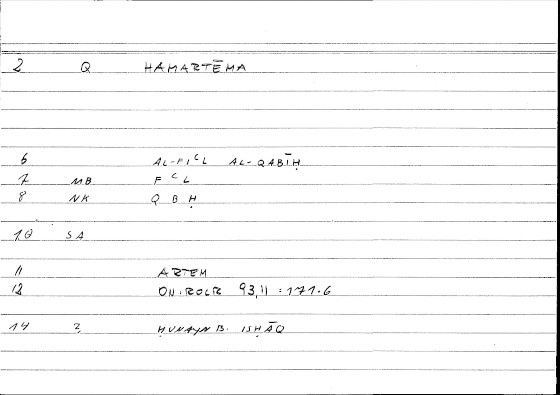 2 Q HAMARTĒMA
6 AL-FIʿL AL-QABĪḤ
7 MB F ʿ L
8 NK Q B Ḥ
10 SA
11 ARTEM
12 ON.ROCR 93,11 = 171.6
14 2 ḤUNAYN B. ISḤĀQ